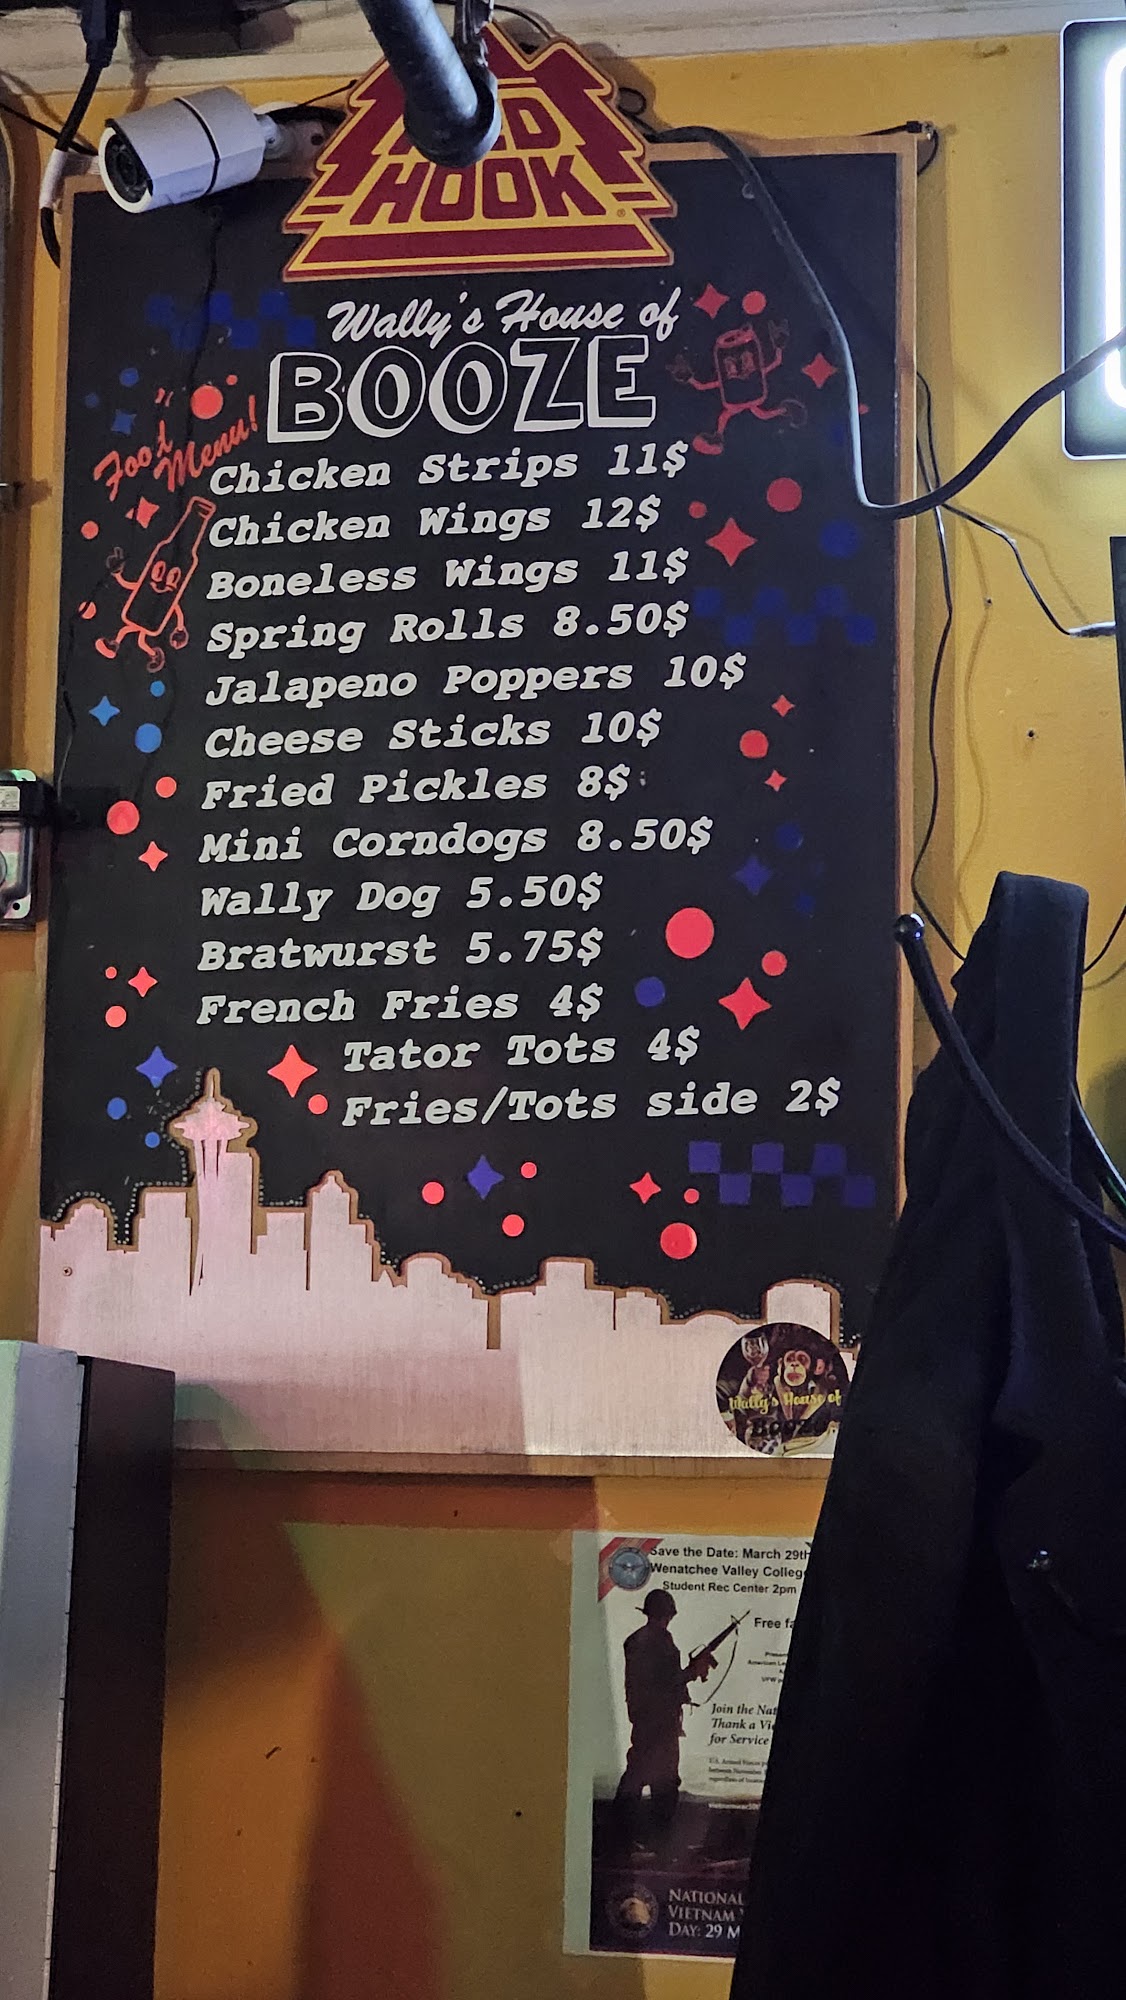 HOOK
Wally's House of
BOOZE
Food
Menu!
Chicken Strips 11$
Chicken Wings 12$
Boneless Wings 11$
Spring Rolls 8.50$
Jalapeno Poppers 10$
Cheese Sticks 10$
Fried Pickles 8$
Mini Corndogs 8.50$
Wally Dog 5.50$
Bratwurst 5.75$
French Fries 4$
Tator Tots 4$
Fries/Tots side 2$
Wally's House of
BOOZE
Save the Date: March 29th
Wenatchee Valley College
Student Rec Center 2pm
Free
Join the
Thank a
for Service
NATIONAL
VIETNAM
DAY: 29